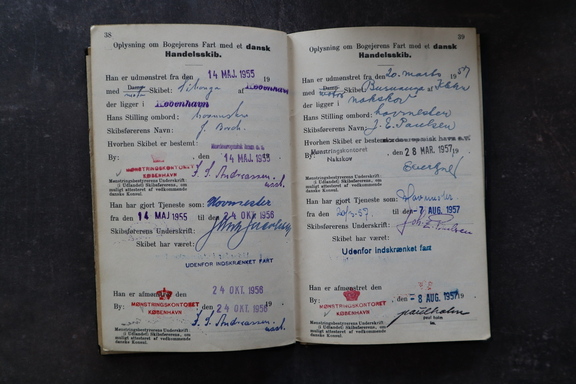 38
Oplysning om Bogejerens Fart med et dansk
Handelsskib.
Han er udmønstret fra den 14 MAJ. 1955 19
med Skibet: af København
der ligger i København
Hans Stilling ombord: hovmester
Skibsførerens Navn: J.
Hvorhen Skibet er bestemt
By: , den 14 MAJ. 1955
MØNSTRINGSKONTORET
KØBENHAVN
F. S. Andrassen
Mønstringsbestyrerens Underskrift:
(i Udlandet Skibsførerens, om
muligt attesteret af vedkommende
danske Konsul.
Han har gjort Tjeneste som: Hovmester
fra den 14 MAJ 1955 til den 24 OKT 1956
Skibsførerens Underskrift:
Skibet har været:
UDENFOR INDSKRÆNKET FART
Han er afmønstret den 24 OKT. 1956
By: , den 24 OKT. 1956 19
MØNSTRINGSKONTORET
KØBENHAVN
F. S. Andrassen
Mønstringsbestyrerens Underskrift:
(i Udlandet Skibsførerens, om
muligt attesteret af vedkommende
danske Konsul.
39
Oplysning om Bogejerens Fart med et dansk
Handelsskib.
Han er udmønstret fra den 20. marts 1957
med Skibet: af
der ligger i nakskov
Hans Stilling ombord: hovmester
Skibsførerens Navn: J. E. Paulsen
Hvorhen Skibet er bestemt
By: Mønstringskontoret , den 28 MAR. 1957 19
Nakskov
Mønstringsbestyrerens Underskrift:
(i Udlandet Skibsførerens, om
muligt attesteret af vedkommende
danske Konsul.
Han har gjort Tjeneste som: Hovmester
fra den 20/3-57. til den -7 AUG. 1957
Skibsførerens Underskrift: Joh. E. Paulsen
Skibet har været:
Udenfor indskrænket fart
Han er afmønstret den
By: , den -8 AUG. 1957 19
MØNSTRINGSKONTORET
KØBENHAVN
poul holm
Mønstringsbestyrerens Underskrift:
(i Udlandet Skibsførerens, om
muligt attesteret af vedkommende
danske Konsul.